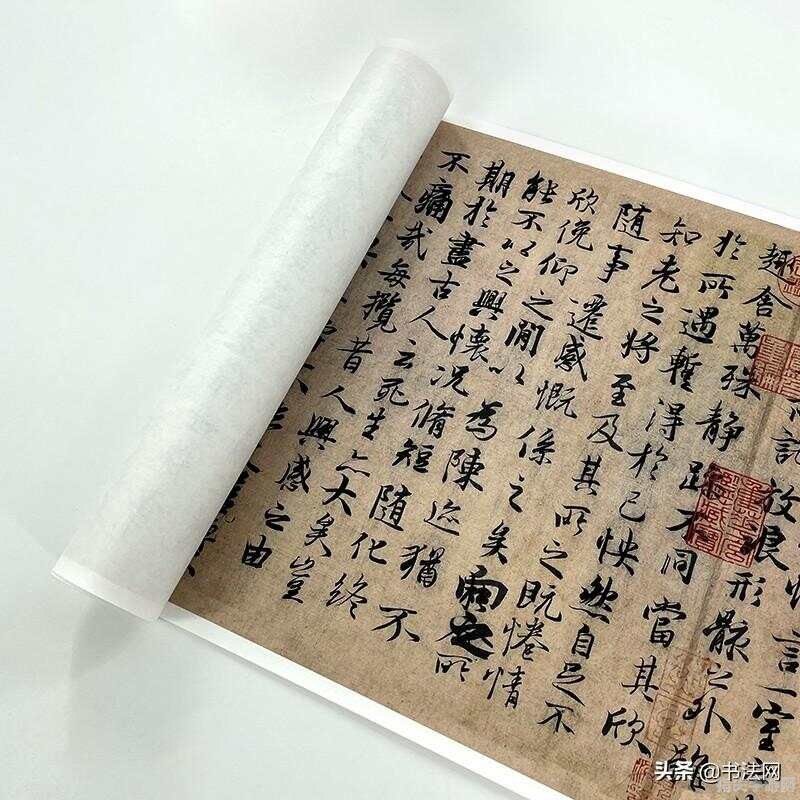 言一室
放浪形骸之外雖
趣舍萬殊靜躁不同當其欣
於所遇暫得於己怏然自足不
知老之將至及其所之既惓情
隨事遷感慨係之矣向之所
欣俛仰之閒以為陳迹猶不
能不以之興懷況脩短隨化終
期於盡古人云死生亦大矣豈
不痛哉每攬昔人興感之由
头条 @书法网